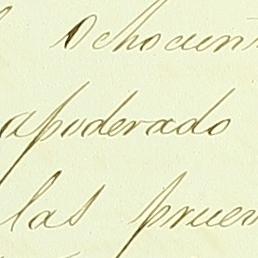 Ochocient
apoderado
las prue